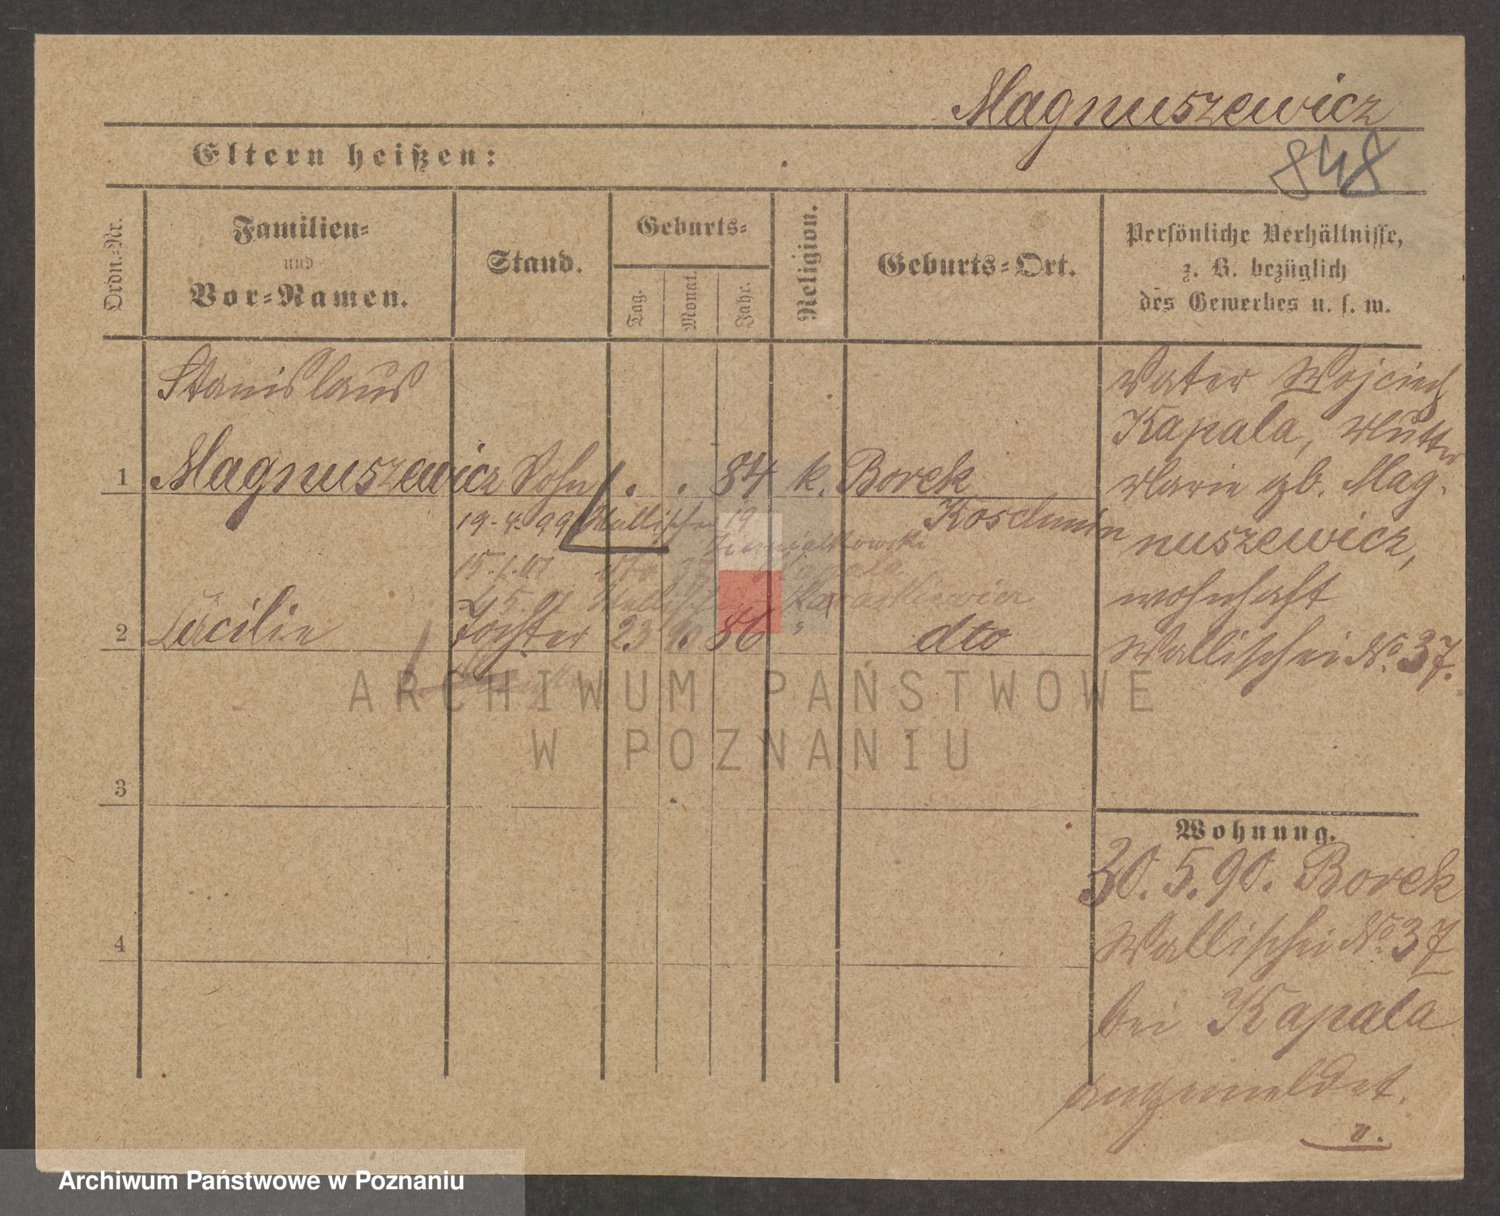 Magnuszewicz
848
Eltern heißen:
Ordn.-Nr.
Familien-
und
Vor-Namen.
Stand.
Geburts-
Tag.
Monat.
Jahr.
Religion.
Geburts-Ort.
Persönliche Verhältnisse,
z. B. bezüglich
des Gewerbes u. s. w.
Stanislaus
1 Magnuszewicz Sohn . . 84 k. Borek
Koschmin
19.4.99 Wallischei 19
Ziemialkowski
15.1.01 dto Kapala
5.01 Wallischei
2 Cäcilie Tochter 23 10 86 " dto
3
4
Vater Wojciech
Kapala, Mutter
Marie gb. Mag-
nuszewicz,
wohnhaft
Wallischei No. 37.
Wohnung.
30.5.90. Borek
Wallischei No. 37
bei Kapala
angemeldet.
ARCHIWUM PAŃSTWOWE
W POZNANIU
Archiwum Państwowe w Poznaniu